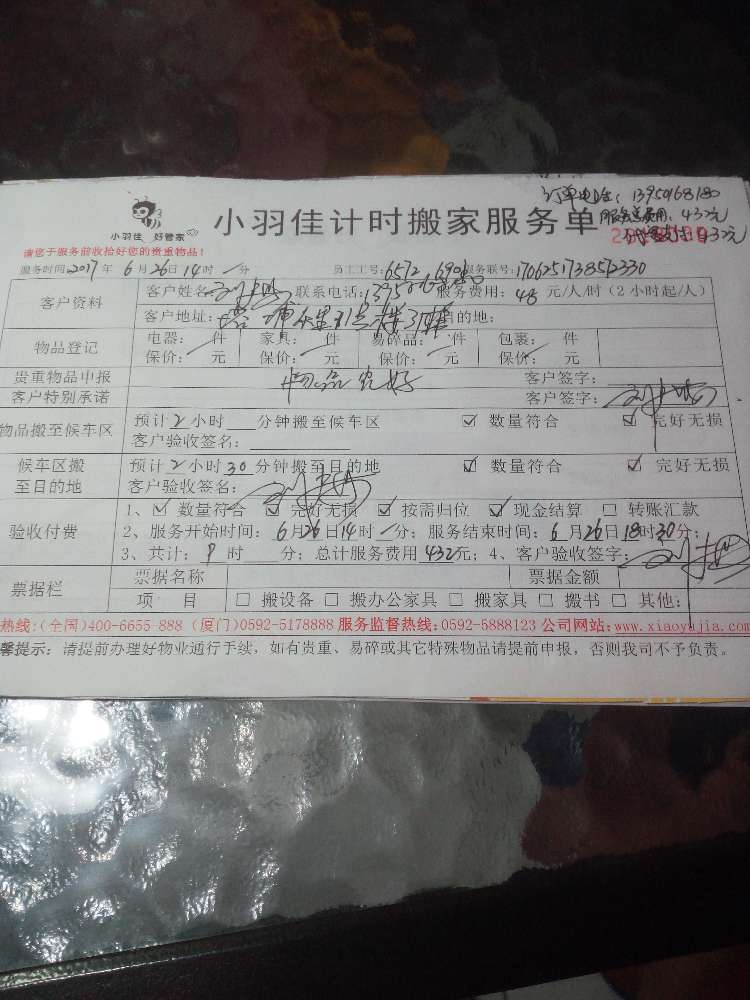 订单电话：13950168180
小羽佳 好管家
小羽佳计时搬家服务单
服务总费用：432元
代客支付：432元
请您于服务前收拾好您的贵重物品！
服务时间2017年6月26日14时 分 员工工号：6572 6901 服务联号：170625173852330
客户资料
客户姓名： 联系电话： 服务费用：48元/人/时（2小时起/人）
客户地址： 目的地：
物品登记
电器： 件 家具： 件 易碎品： 件 包裹： 件
保价： 元 保价： 元 保价： 元 保价： 元
贵重物品申报 物品完好 客户签字：
客户特别承诺 客户签字：
物品搬至候车区
预计2小时 分钟搬至候车区 ☑ 数量符合 ☑ 完好无损
客户验收签名：
候车区搬至目的地
预计2小时30分钟搬至目的地 ☑ 数量符合 ☑ 完好无损
客户验收签名：
验收付费
1、☑ 数量符合 ☑ 完好无损 ☑ 按需归位 ☑ 现金结算 □ 转账汇款
2、服务开始时间：6月26日14时 分；服务结束时间：6月26日18时30分；
3、共计： 时 分；总计服务费用432元；4、客户验收签字：
票据栏
票据名称 票据金额
项 目 □ 搬设备 □ 搬办公家具 □ 搬家具 □ 搬书 □ 其他：
热线：(全国)400-6655-888 (厦门)0592-5178888 服务监督热线：0592-5888123 公司网站：www.xiaoyujia.com
馨提示：请提前办理好物业通行手续，如有贵重、易碎或其它特殊物品请提前申报，否则我司不予负责。